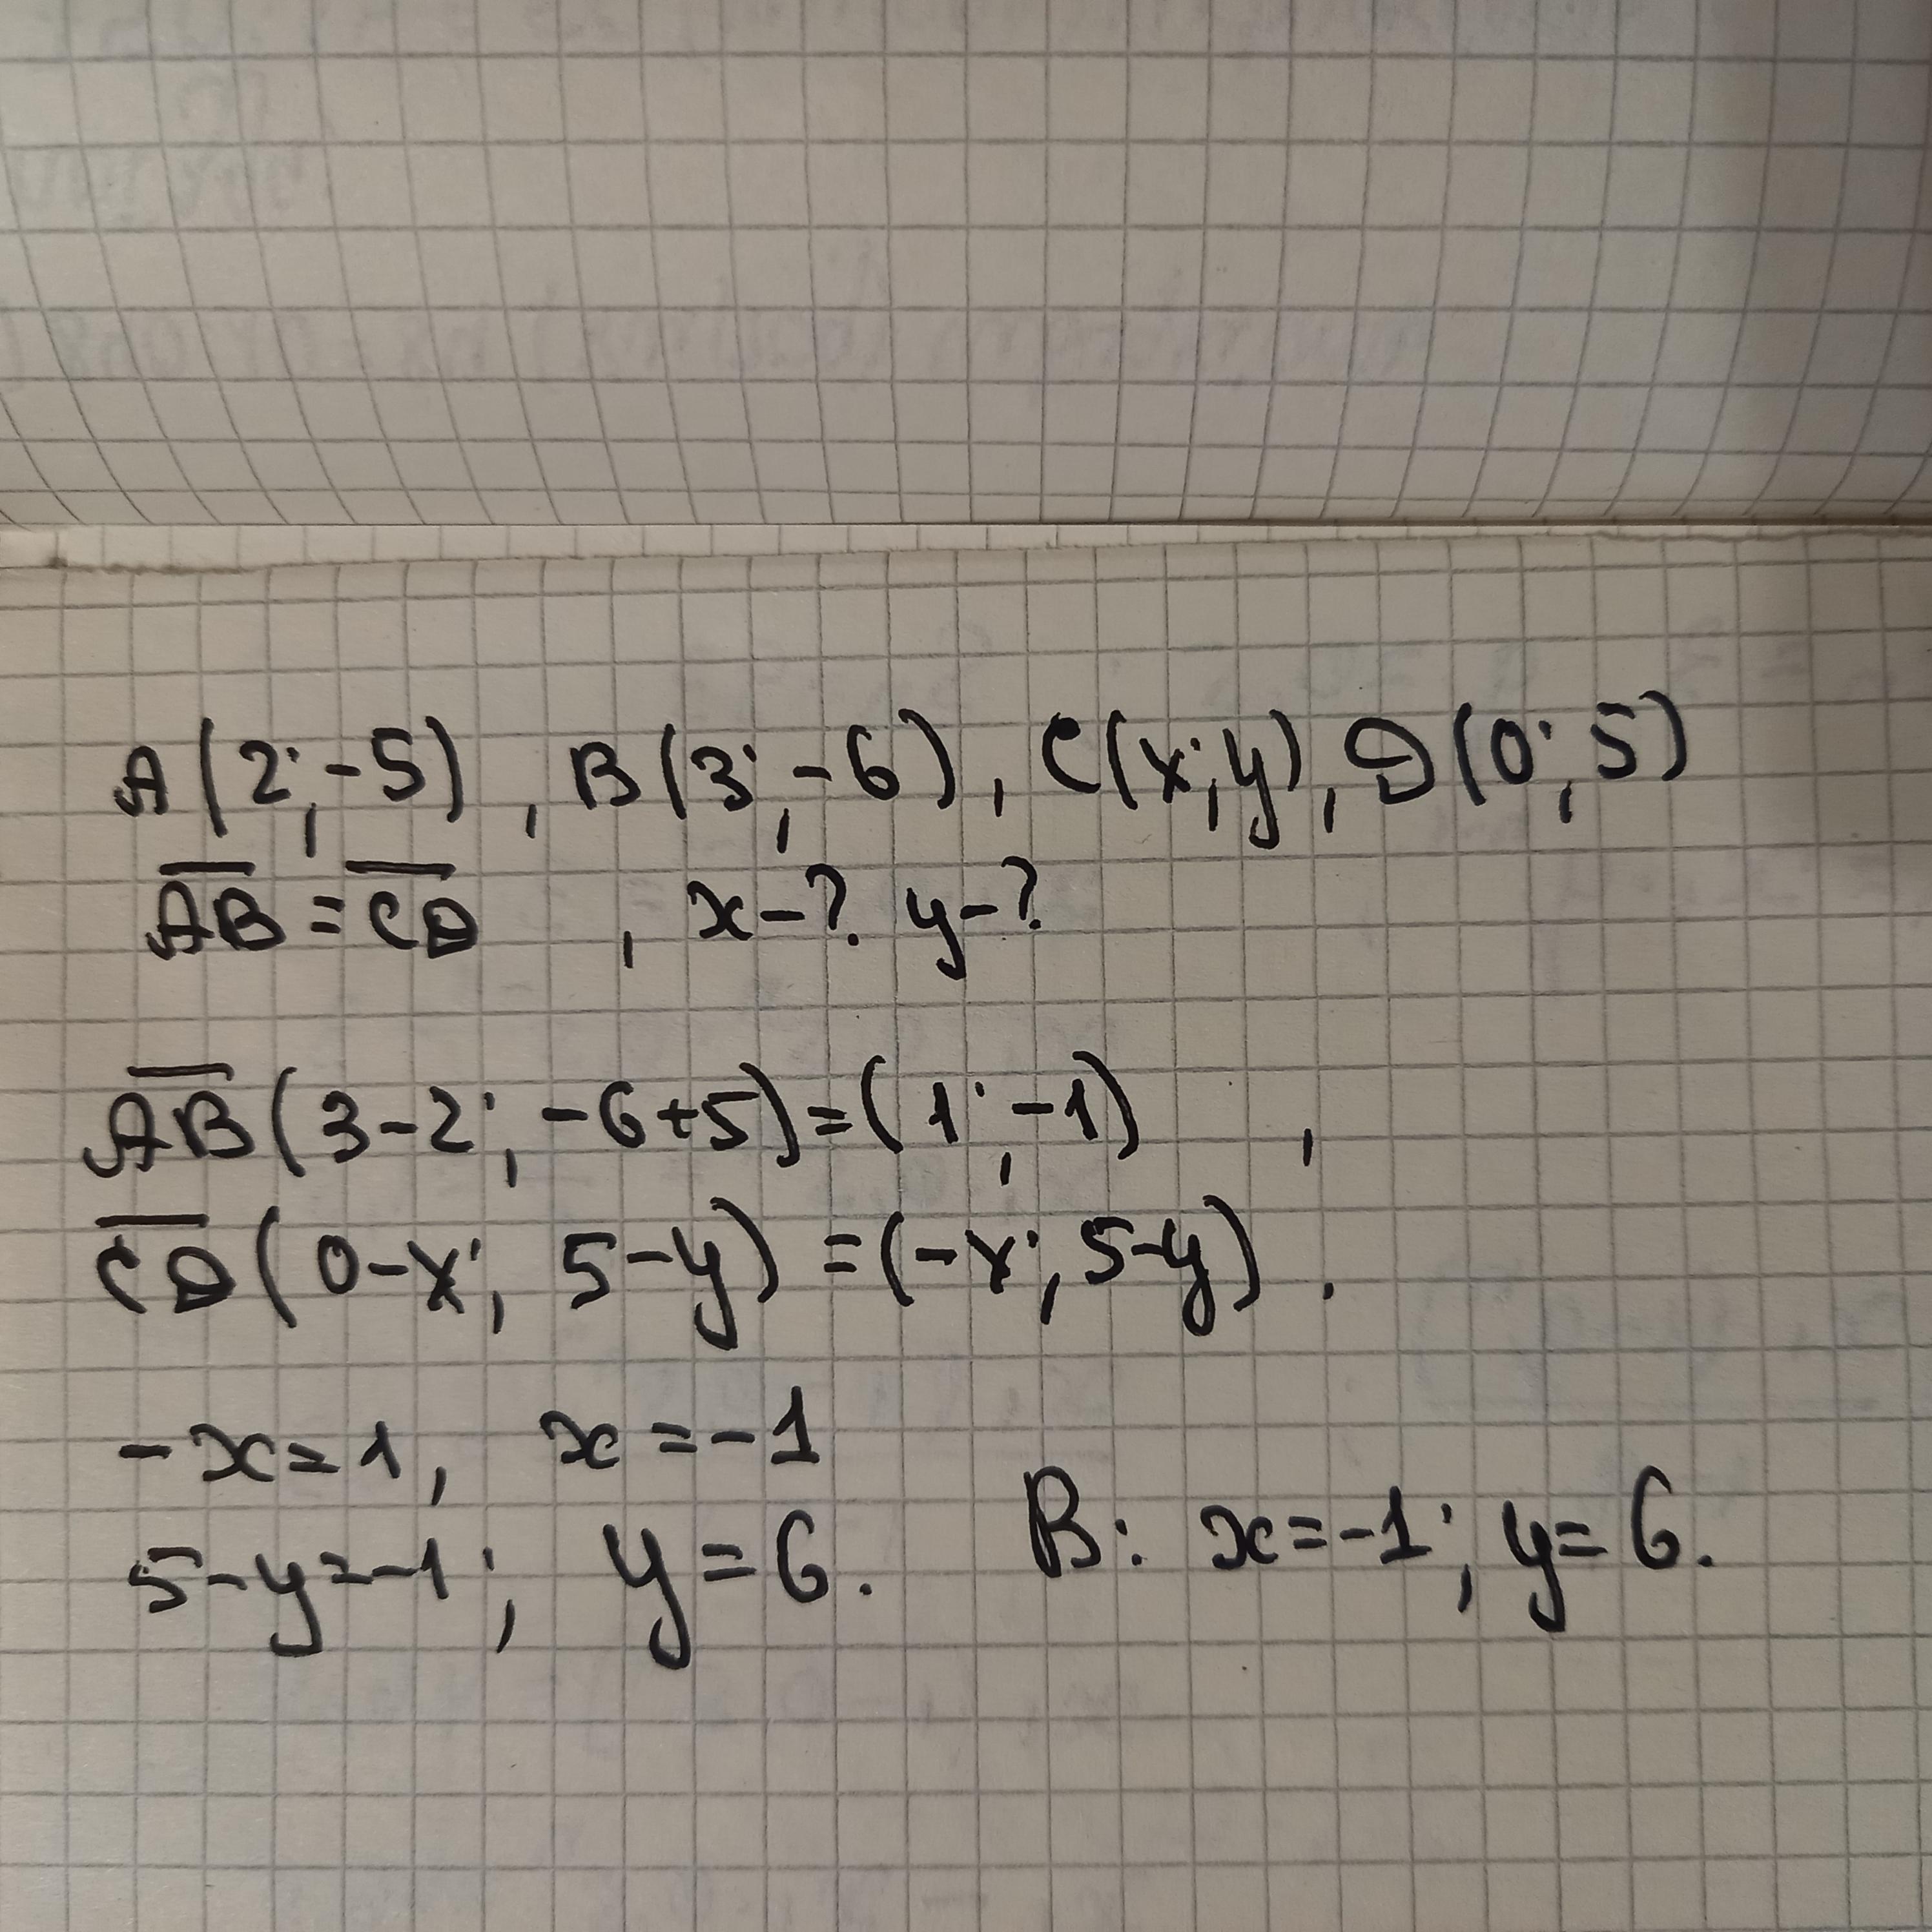 A(2;-5), B(3;-6), C(x;y), D(0;5)
A̅B̅ = C̅D̅, x-? y-?
A̅B̅(3-2; -6+5)=(1;-1),
C̅D̅(0-x; 5-y)=(-x;5-y).
-x=1, x=-1
5-y=-1; y=6. В: x=-1; y=6.